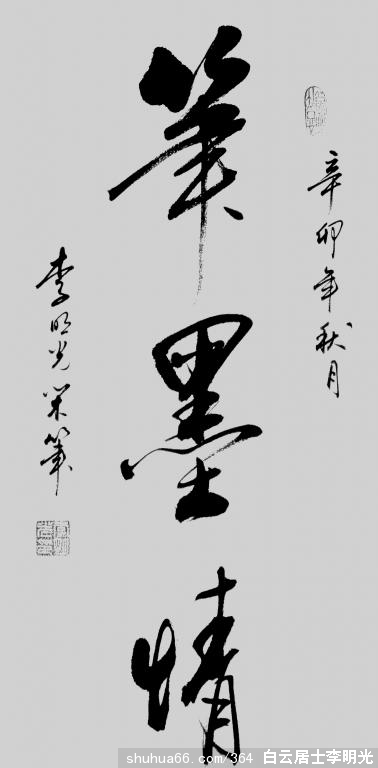 辛卯年秋月
筆墨情
李明光書筆
shuhua66.com/364 白云居士李明光